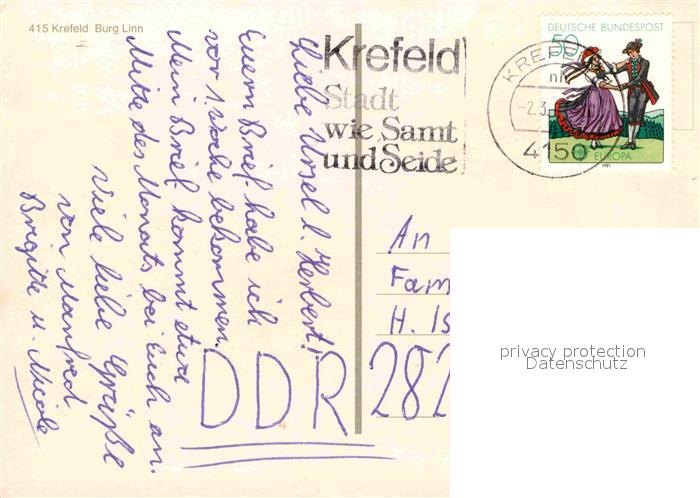 415 Krefeld Burg Linn
Krefeld
Stadt
wie Samt
und Seide
DEUTSCHE BUNDESPOST
50
KREFELD
-2.3.
4150
EUROPA
1981
Liebe Ursel l. Herbert!
Euern Brief habe ich
vor 1. Woche bekommen.
Mein Brief kommt etwa
Mitte des Monats bei Euch an.
Viele liebe Grüße
von Manfred
Brigitte u. Nicole
DDR
An
Fam
H. Is
282
privacy protection
Datenschutz